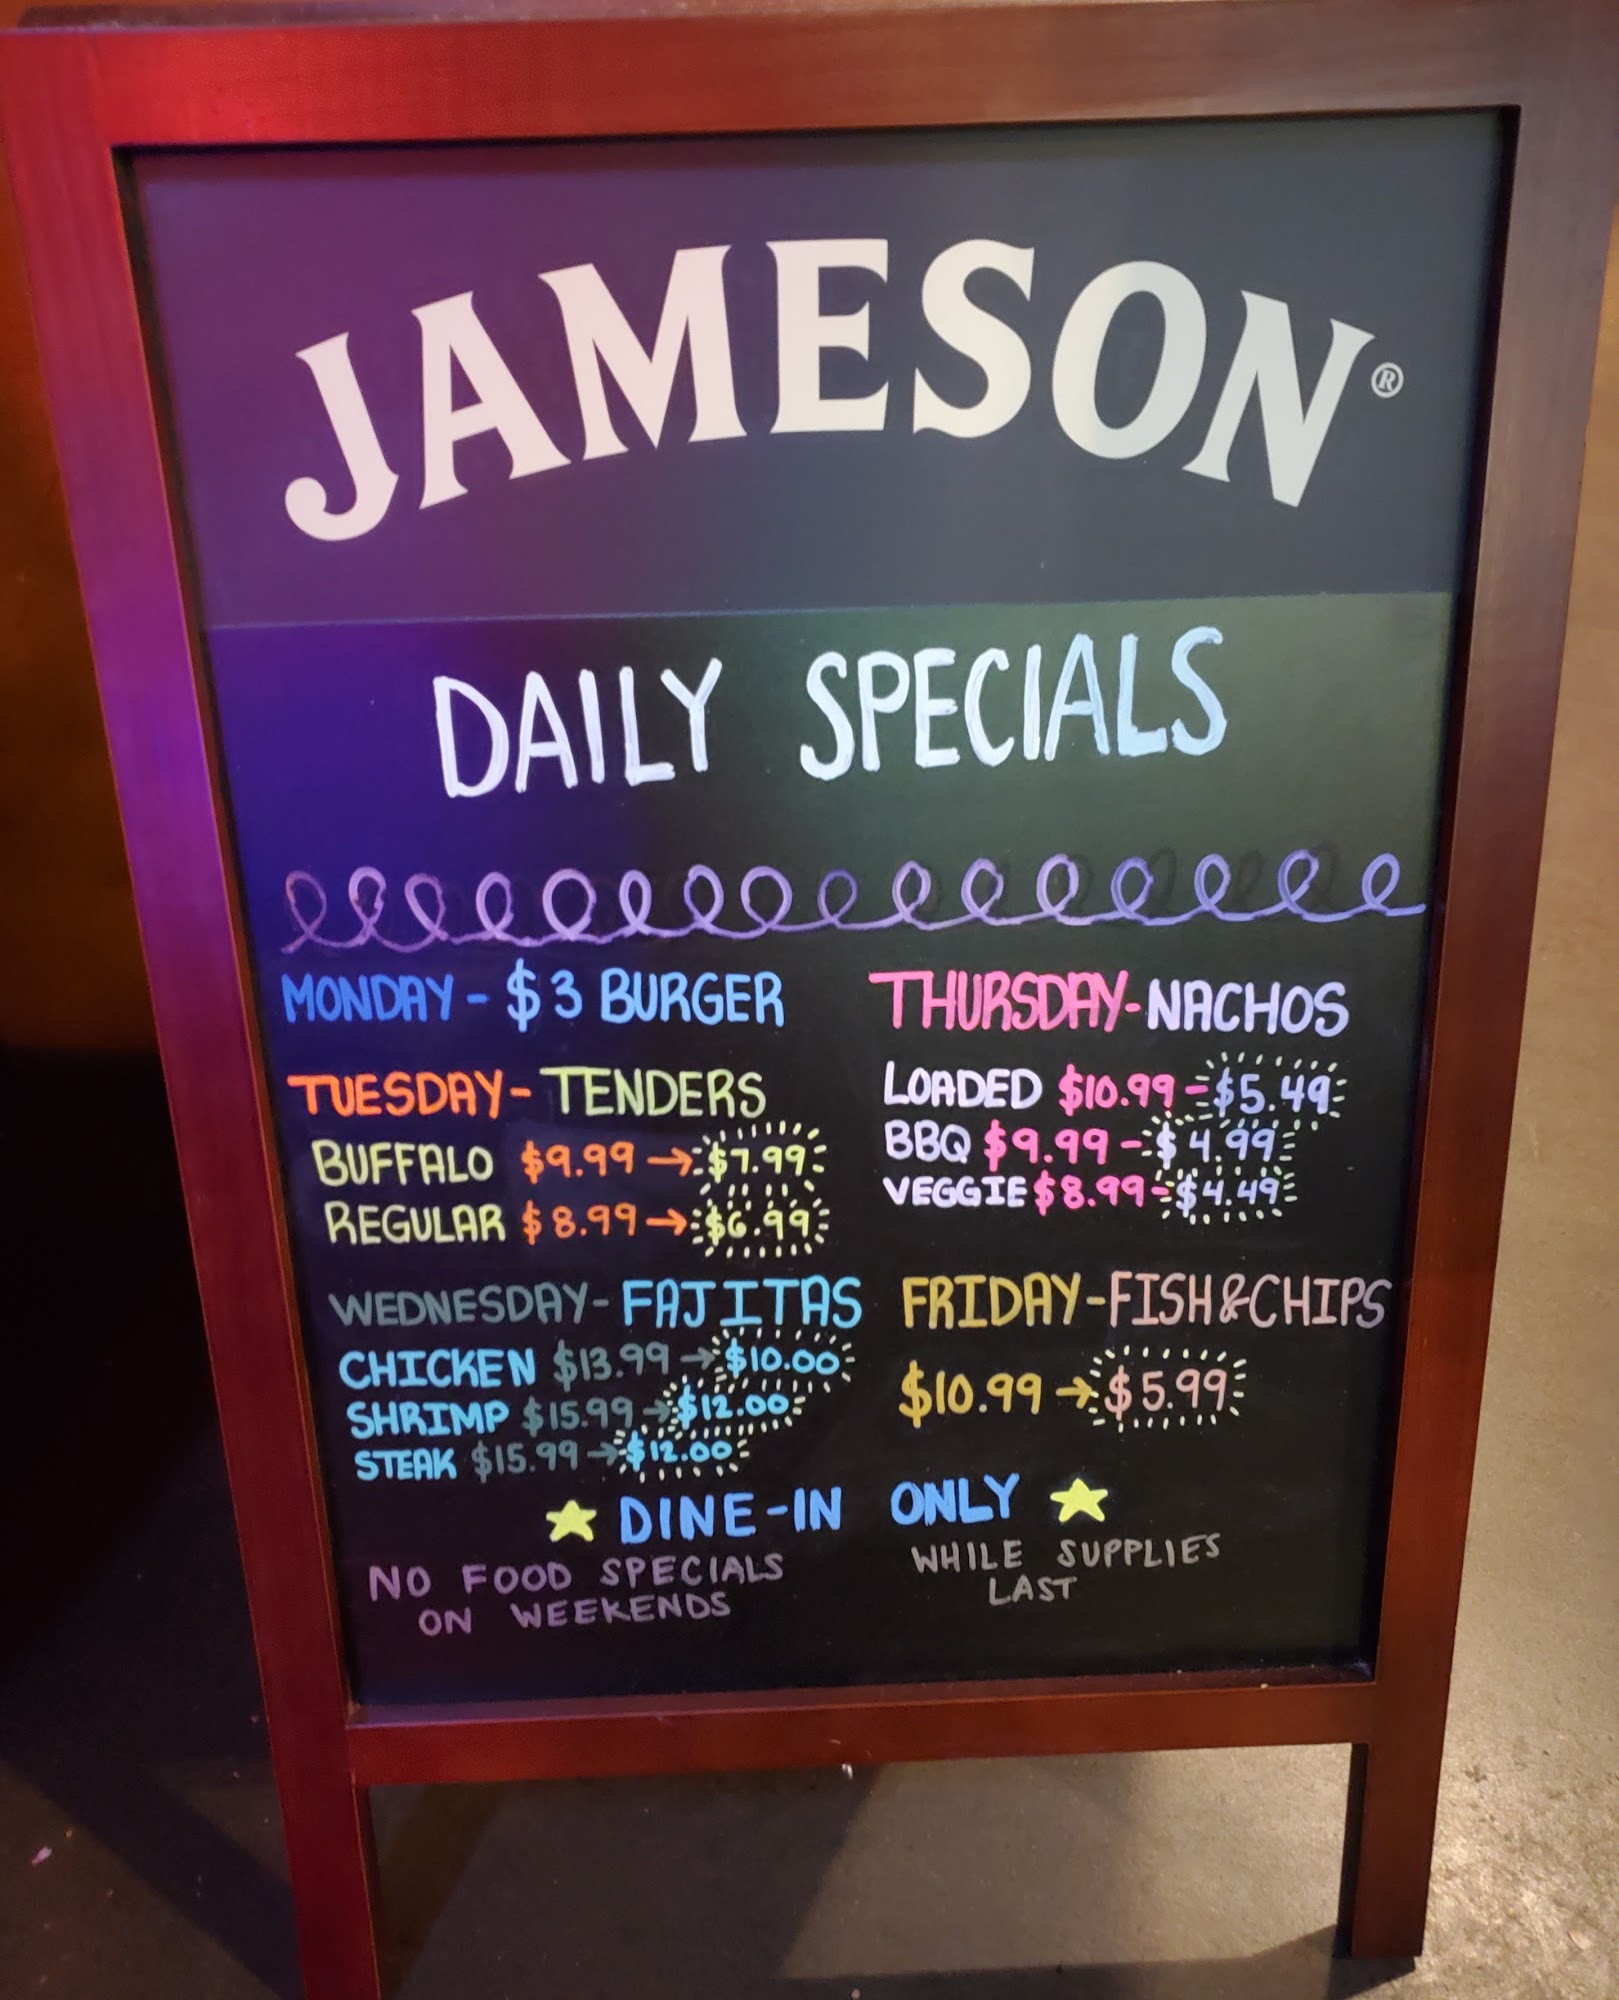 JAMESON®
DAILY SPECIALS
MONDAY - $3 BURGER
TUESDAY - TENDERS
BUFFALO $9.99 → $7.99
REGULAR $8.99 → $6.99
WEDNESDAY - FAJITAS
CHICKEN $13.99 → $10.00
SHRIMP $15.99 → $12.00
STEAK $15.99 → $12.00
THURSDAY - NACHOS
LOADED $10.99 - $5.49
BBQ $9.99 - $4.99
VEGGIE $8.99 - $4.49
FRIDAY - FISH & CHIPS
$10.99 → $5.99
★ DINE-IN ONLY ★
NO FOOD SPECIALS
ON WEEKENDS
WHILE SUPPLIES
LAST